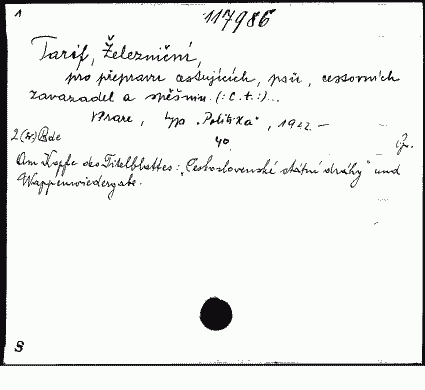 1 117986
Tarif, Železniční,
pro přepravu cestujících, psů, cestovních
zavazadel a spěšnin (: C. t. :)...
V Praze, typ „Politika“, 1922. —
2 Bde 4o. J.
Am Kopfe des Titelblattes: „Československé státní dráhy“ und
Wappenwiedergabe.
S